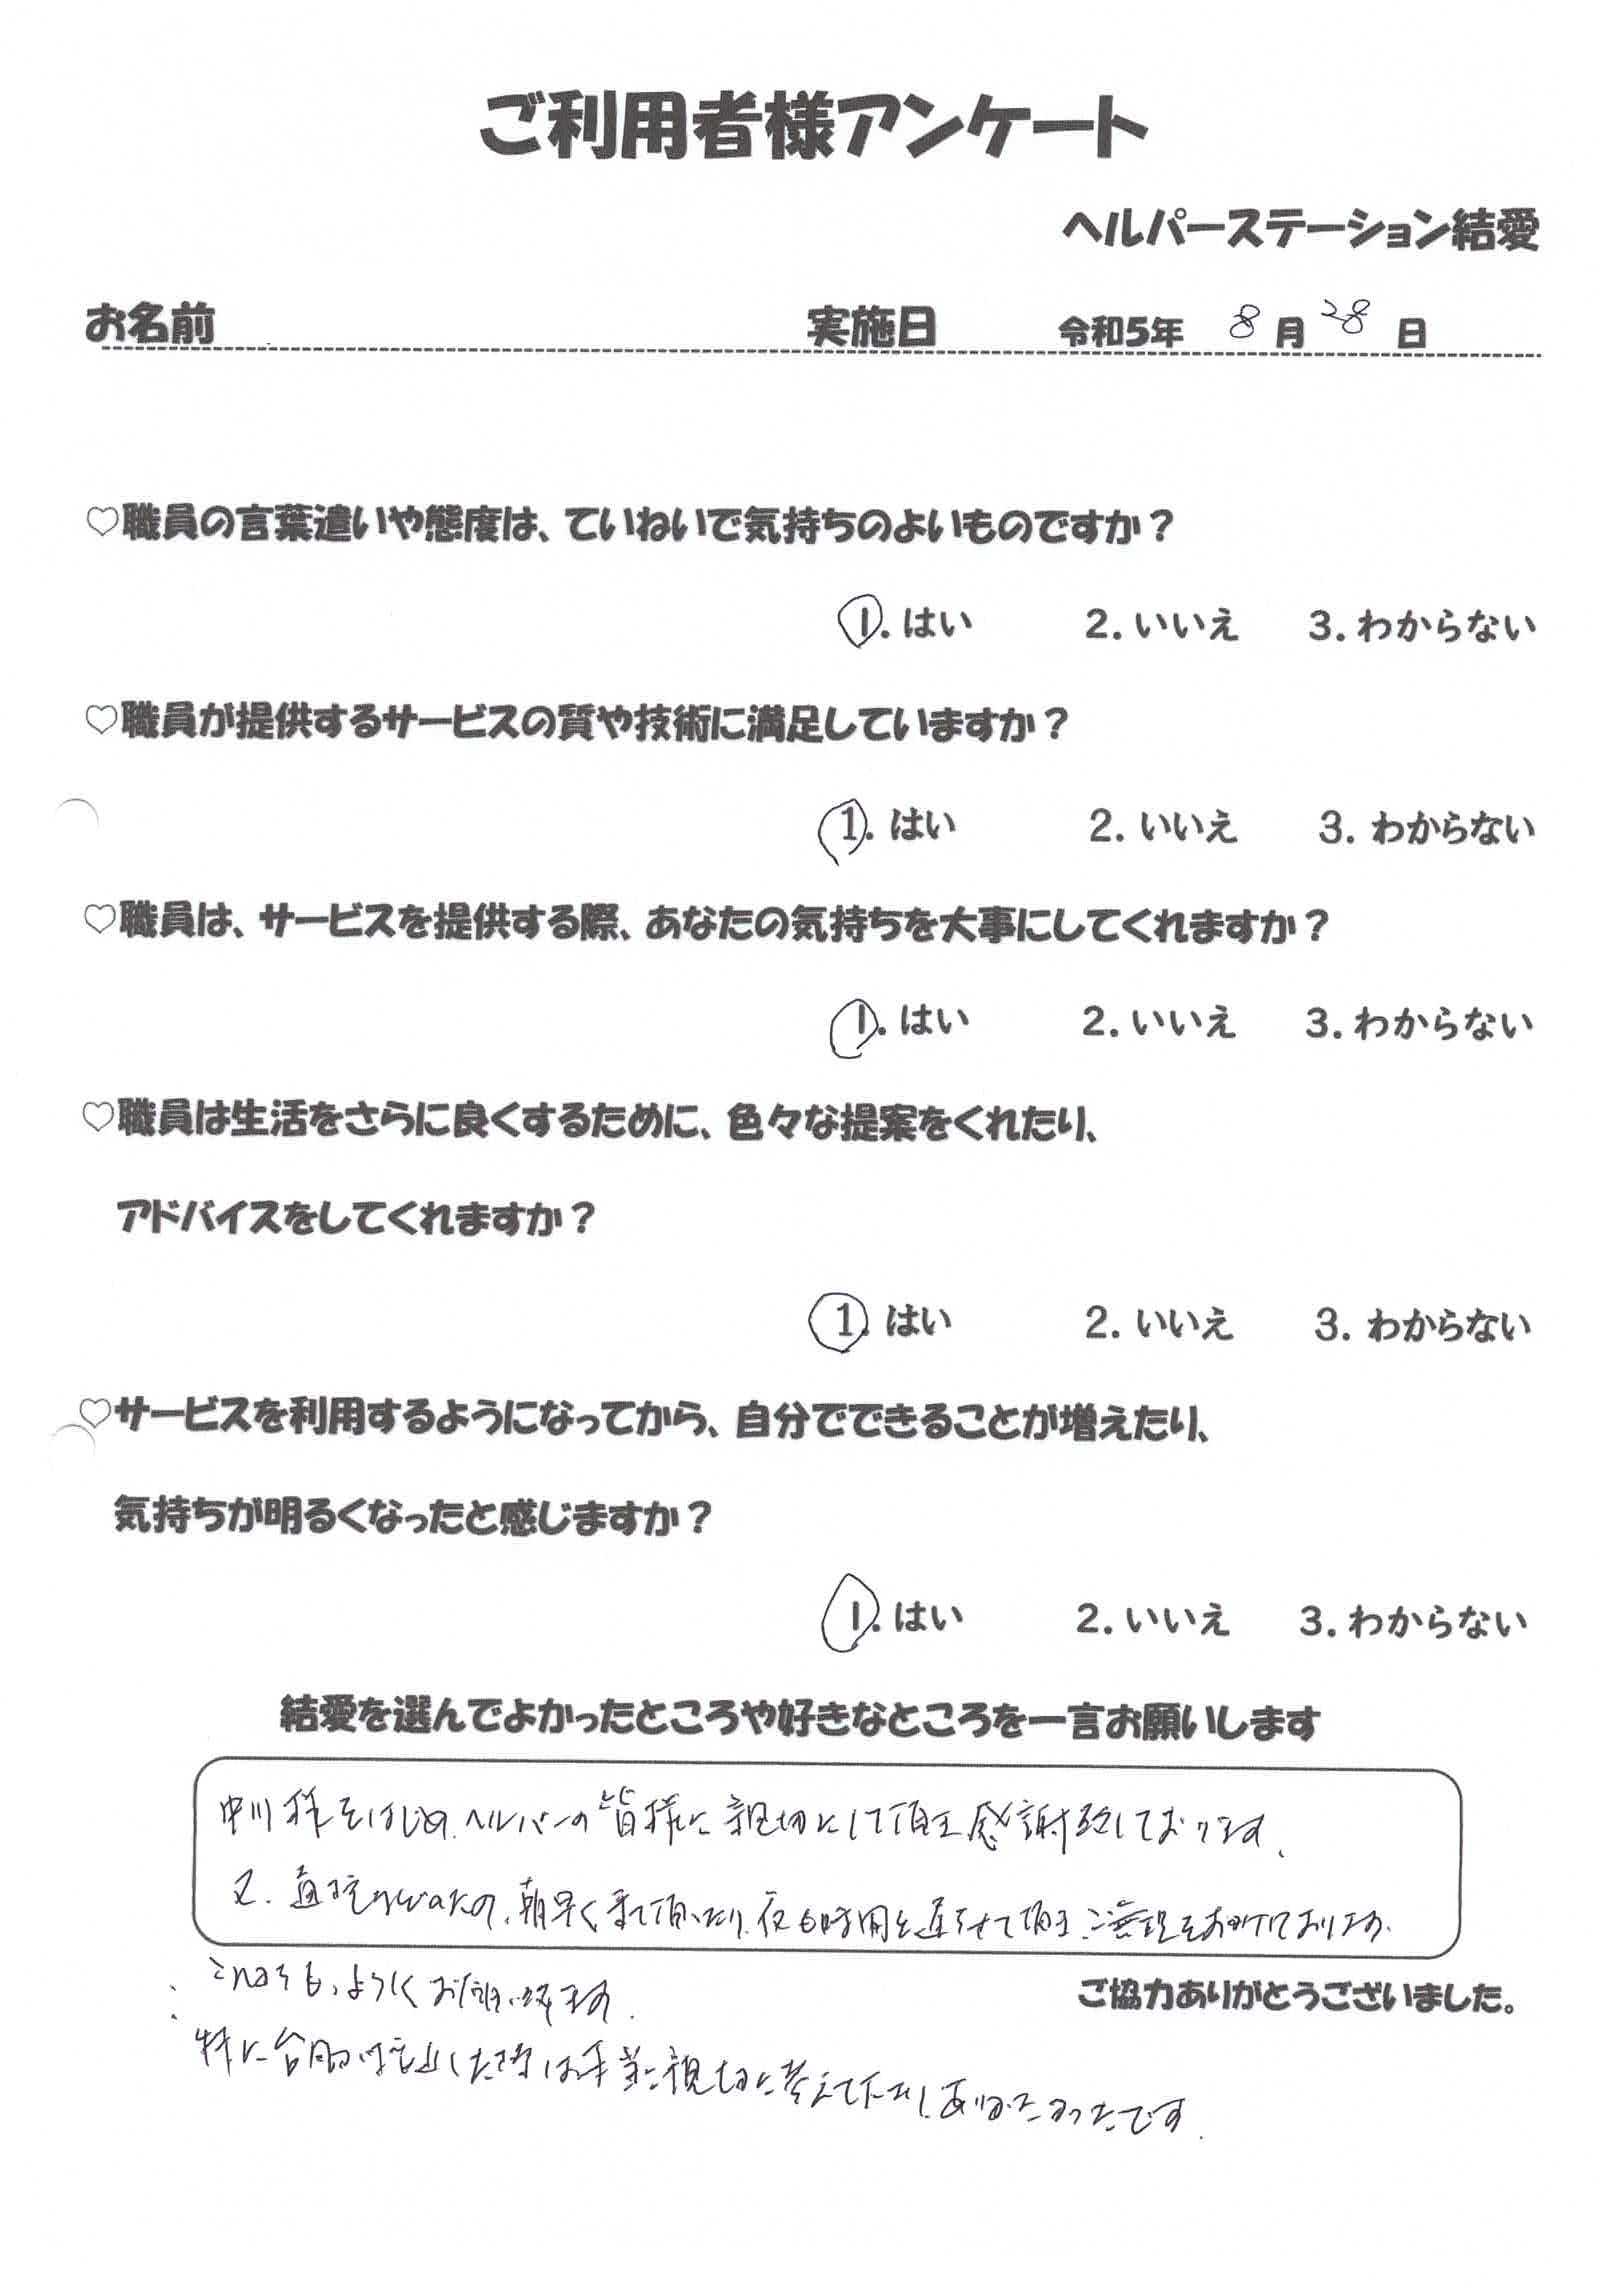 ご利用者様アンケート
ヘルパーステーション結愛
お名前 実施日 令和5年 8月28日
♡職員の言葉遣いや態度は、ていねいで気持ちのよいものですか？
1. はい 2. いいえ 3. わからない
♡職員が提供するサービスの質や技術に満足していますか？
1. はい 2. いいえ 3. わからない
♡職員は、サービスを提供する際、あなたの気持ちを大事にしてくれますか？
1. はい 2. いいえ 3. わからない
♡職員は生活をさらに良くするために、色々な提案をくれたり、
アドバイスをしてくれますか？
1. はい 2. いいえ 3. わからない
♡サービスを利用するようになってから、自分でできることが増えたり、
気持ちが明るくなったと感じますか？
1. はい 2. いいえ 3. わからない
結愛を選んでよかったところや好きなところを一言お願いします
中川様をはじめ、ヘルパーの皆様に親切にして頂き感謝致しております。
又、朝早く来て頂いたり、夜も時間を遅らせて頂き、ご無理をおかけております。
これからも、よろしくお願い致します。
ご協力ありがとうございました。
特に した時は 親切に考えて下さり、ありがたかったです。